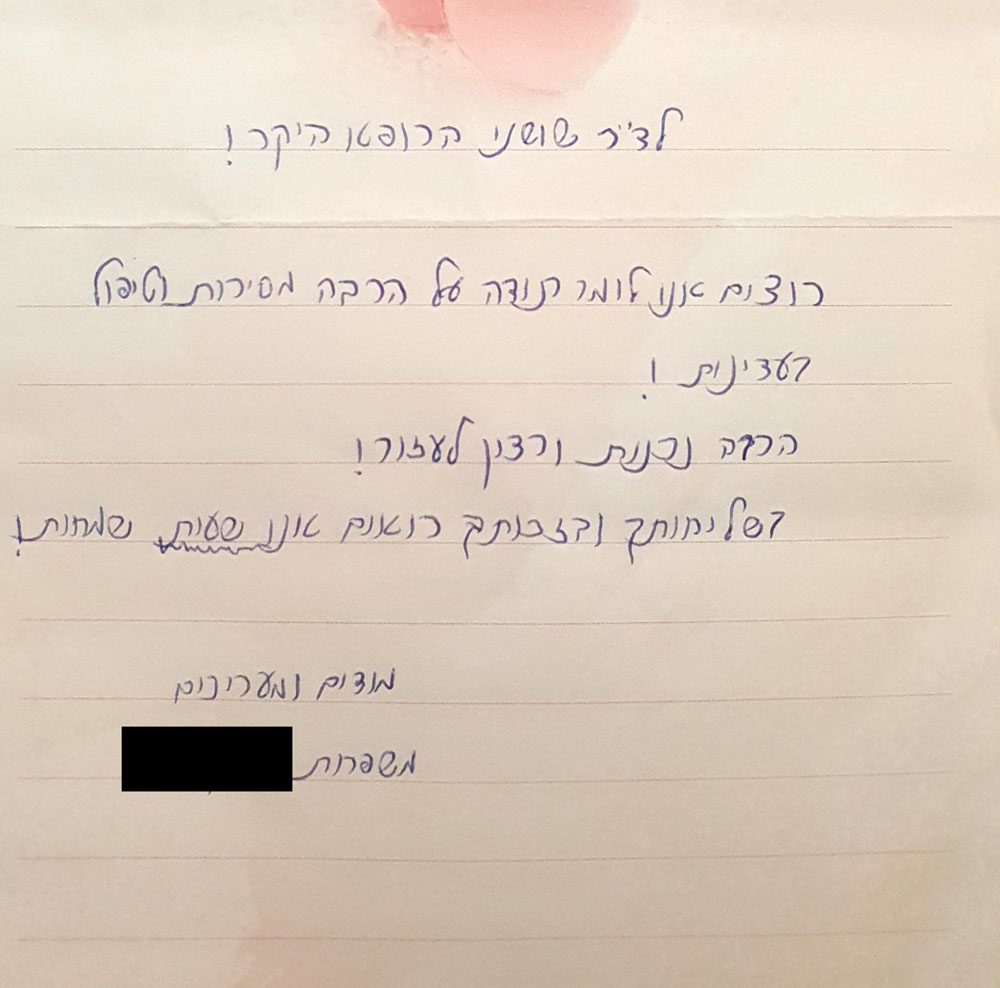 לד"ר שושני הרופא היקר!
רוצים אנו לומר תודה על הרבה מסירות וטיפול
בעדינות!
הרבה נכונות ורצון לעזור!
בשליחותך ובזכותך רואים אנו שעות שמחות!
מודים ומעריכים
משפחות